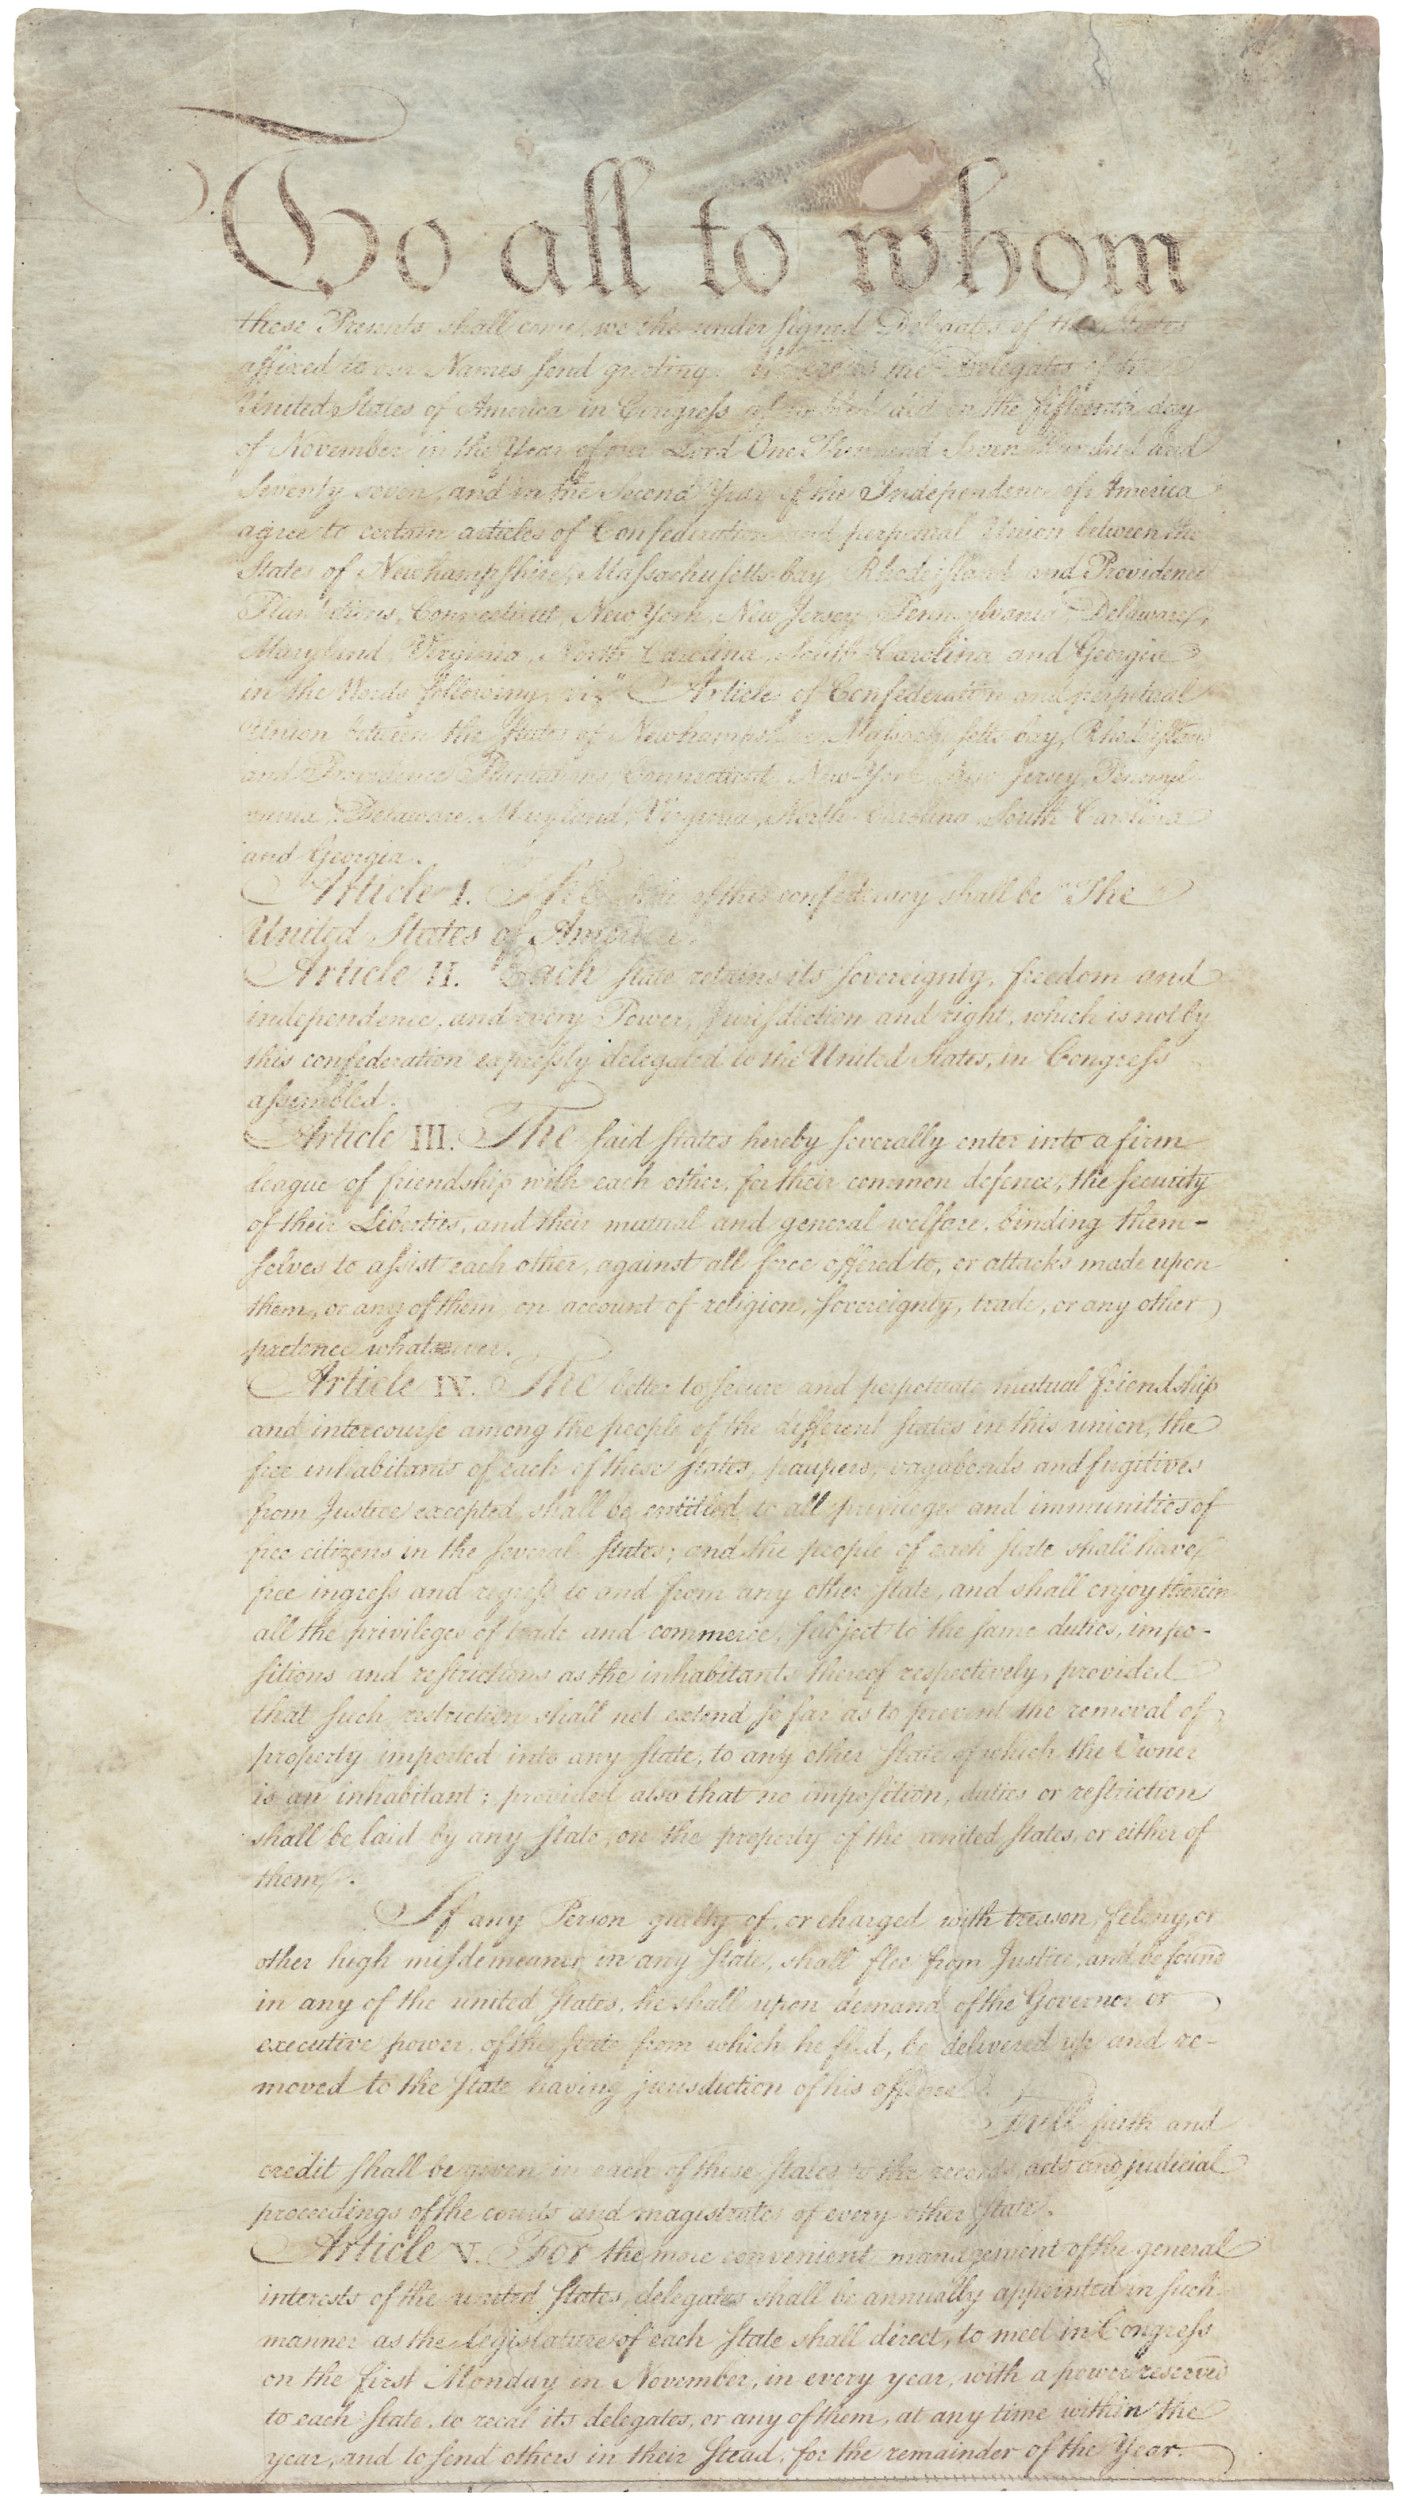 To all to whom
these Presents shall come, we the under signed Delegates of the States
affixed to our Names send greeting. Whereas the Delegates of the
United States of America in Congress assembled did on the fifteenth day
of November in the Year of our Lord One Thousand Seven Hundred and
Seventy seven, and in the Second Year of the Independence of America
agree to certain articles of Confederation and perpetual Union between the
States of Newhampshire, Massachusetts-bay, Rhodeisland and Providence
Plantations, Connecticut, New York, New Jersey, Pennsylvania, Delaware,
Maryland, Virginia, North Carolina, South Carolina and Georgia
in the Words following, viz. "Articles of Confederation and perpetual
Union between the States of Newhampshire, Massachusetts-bay, Rhodeisland
and Providence Plantations, Connecticut, New-York, New-Jersey, Pennsyl-
vania, Delaware, Maryland, Virginia, North-Carolina, South-Carolina
and Georgia.
Article I. The Stile of this confederacy shall be "The
United States of America."
Article II. Each state retains its sovereignty, freedom and
independence, and every Power, Jurisdiction and right, which is not by
this confederation expressly delegated to the United States, in Congress
assembled.
Article III. The said states hereby severally enter into a firm
league of friendship with each other, for their common defence, the security
of their Liberties, and their mutual and general welfare, binding them-
selves to assist each other, against all force offered to, or attacks made upon
them, or any of them, on account of religion, sovereignty, trade, or any other
pretence whatever.
Article IV. The better to secure and perpetuate mutual friendship
and intercourse among the people of the different states in this union, the
free inhabitants of each of these states, paupers, vagabonds and fugitives
from Justice excepted, shall be entitled to all privileges and immunities of
free citizens in the several states; and the people of each state shall have
free ingress and regress to and from any other state, and shall enjoy therein
all the privileges of trade and commerce, subject to the same duties, impo-
sitions and restrictions as the inhabitants thereof respectively, provided
that such restriction shall not extend so far as to prevent the removal of
property imported into any state, to any other state of which the Owner
is an inhabitant; provided also that no imposition, duties or restriction
shall be laid by any state, on the property of the united states, or either of
them.
If any Person guilty of, or charged with treason, felony, or
other high misdemeanor in any state, shall flee from Justice, and be found
in any of the united states, he shall upon demand of the Governor or
executive power, of the state from which he fled, be delivered up and re-
moved to the state having jurisdiction of his offence.
Full faith and
credit shall be given in each of these states to the records, acts and judicial
proceedings of the courts and magistrates of every other state.
Article V. For the more convenient management of the general
interests of the united states, delegates shall be annually appointed in such
manner as the legislature of each state shall direct, to meet in Congress
on the first Monday in November, in every year, with a power reserved
to each state, to recal its delegates, or any of them, at any time within the
year, and to send others in their stead, for the remainder of the Year.